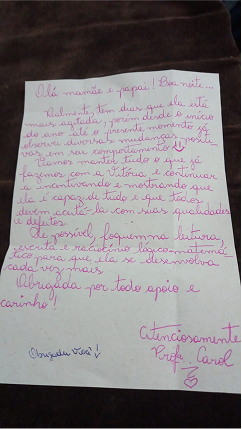 Olá mamãe e papai! Boa noite...
Realmente, tem dias que ela está
mais agitada, porém desde o início
do ano até o presente momento já
observei diversas mudanças positi-
vas em seu comportamento
Vamos manter tudo o que já
fazemos com a Vitória e continuar
a incentivando e mostrando que
ela é capaz de tudo e que todos
devem aceitá-la com suas qualidades
e defeitos.
Se possível, foquem na leitura,
escrita e raciocínio lógico-matemá-
tico para que ela se desenvolva
cada vez mais.
Obrigada por todo apoio e
carinho!
Atenciosamente
Profª. Carol
Obrigada